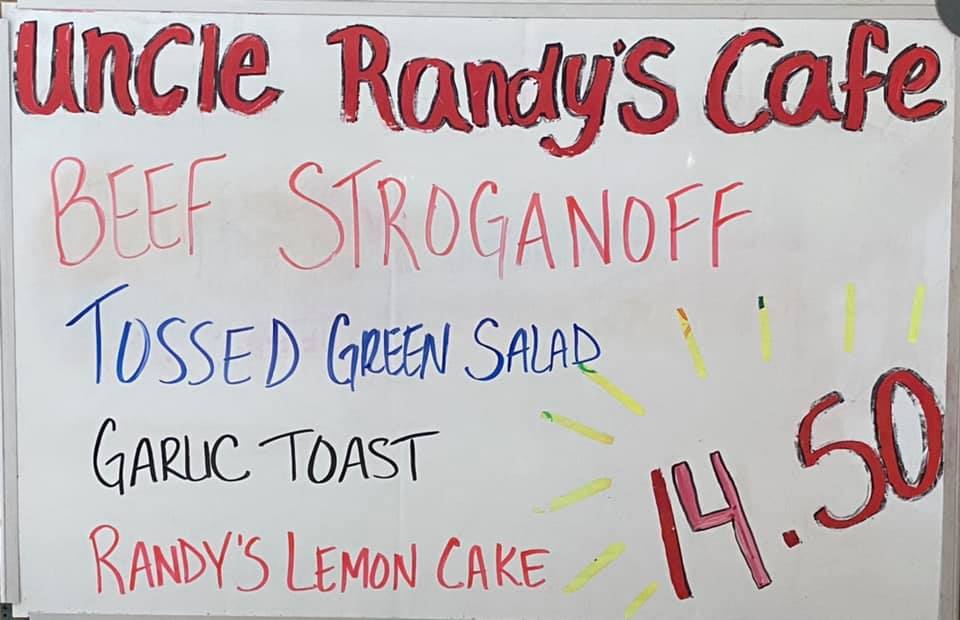 Uncle Randy's Cafe
BEEF STROGANOFF
TOSSED GREEN SALAD
GARLIC TOAST
14.50
RANDY'S LEMON CAKE